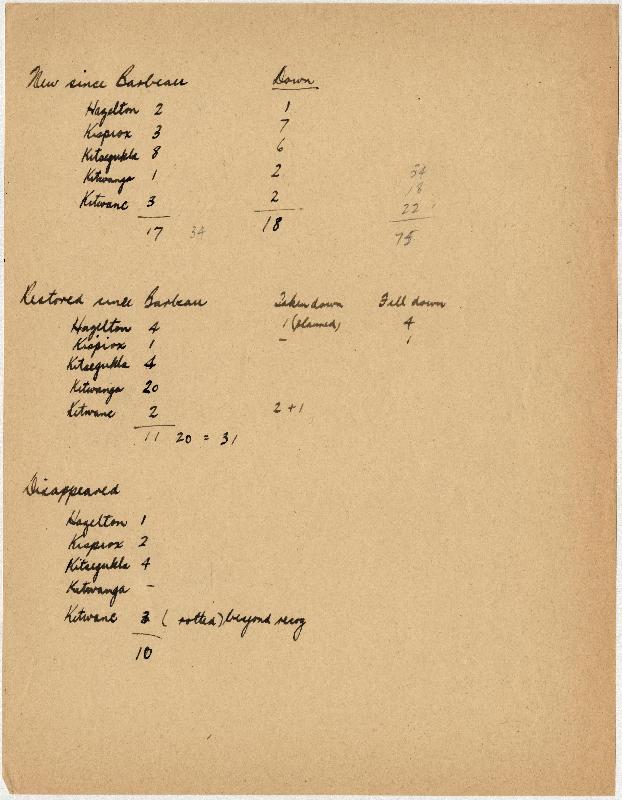 New since Barbeau Down
Hazelton 2 1
Kispiox 3 7
Kitsegukla 8 6
Kitwanga 1 2 34
18
Kitwanc 3 2 22
17 34 18 75
Restored since Barbeau Taken down Fell down
Hazelton 4 1 (planned) 4
Kispiox 1 - 1
Kitsegukla 4
Kitwanga 20
Kitwanc 2 2 + 1
11 20 = 31
Disappeared
Hazelton 1
Kispiox 2
Kitsegukla 4
Kitwanga -
Kitwanc 3 ( rotted) beyond recog
10